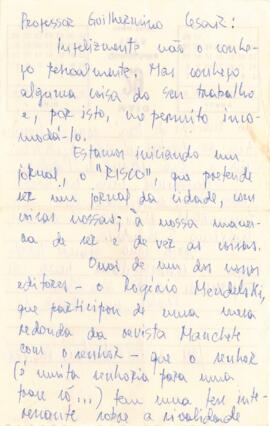 Professor Guilhermino Cesar:
Infelizmente não o conhe-
ço pessoalmente. Mas conheço
alguma coisa do seu trabalho
e, por isto, me permito inco-
modá-lo.
Estamos iniciando um
jornal, o "RISCO", que pretende
ser um jornal da cidade, com
coisas nossas; à nossa manei-
ra de ser e de ver as coisas.
Ouvi de um dos nossos
editores - o Rogério Mendelski,
que participou de uma mesa
redonda da revista Manchete
com o senhor - que o senhor
(é muita senhoria para uma
frase só...) tem uma tese inte-
ressante sobre a rivalidade